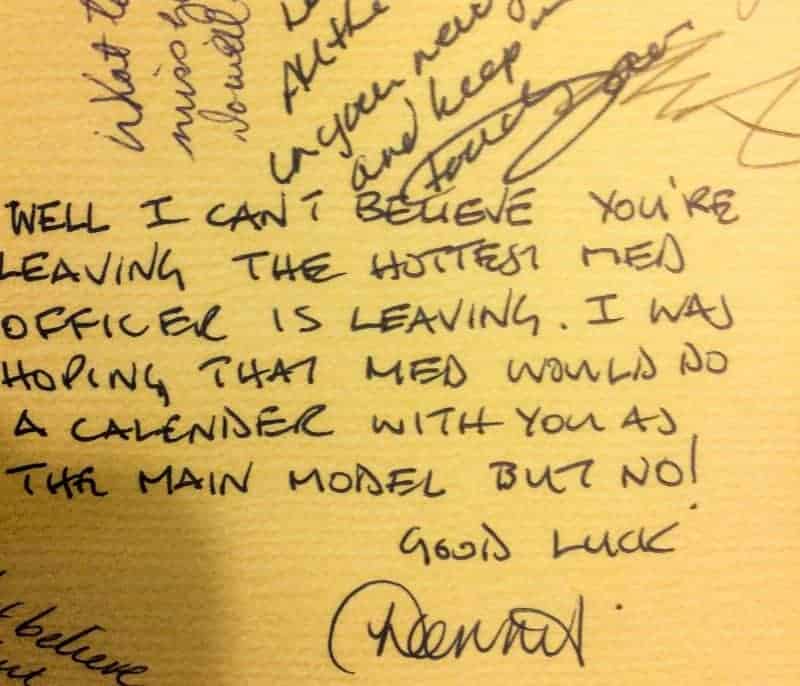 what
miss
Do well
All the
in your new
and keep
touch
WELL I CAN'T BELIEVE YOU'RE
LEAVING THE HOTTEST MED
OFFICER IS LEAVING. I WAS
HOPING THAT MED WOULD DO
A CALENDER WITH YOU AS
THE MAIN MODEL BUT NO!
GOOD LUCK
Dennis
believe